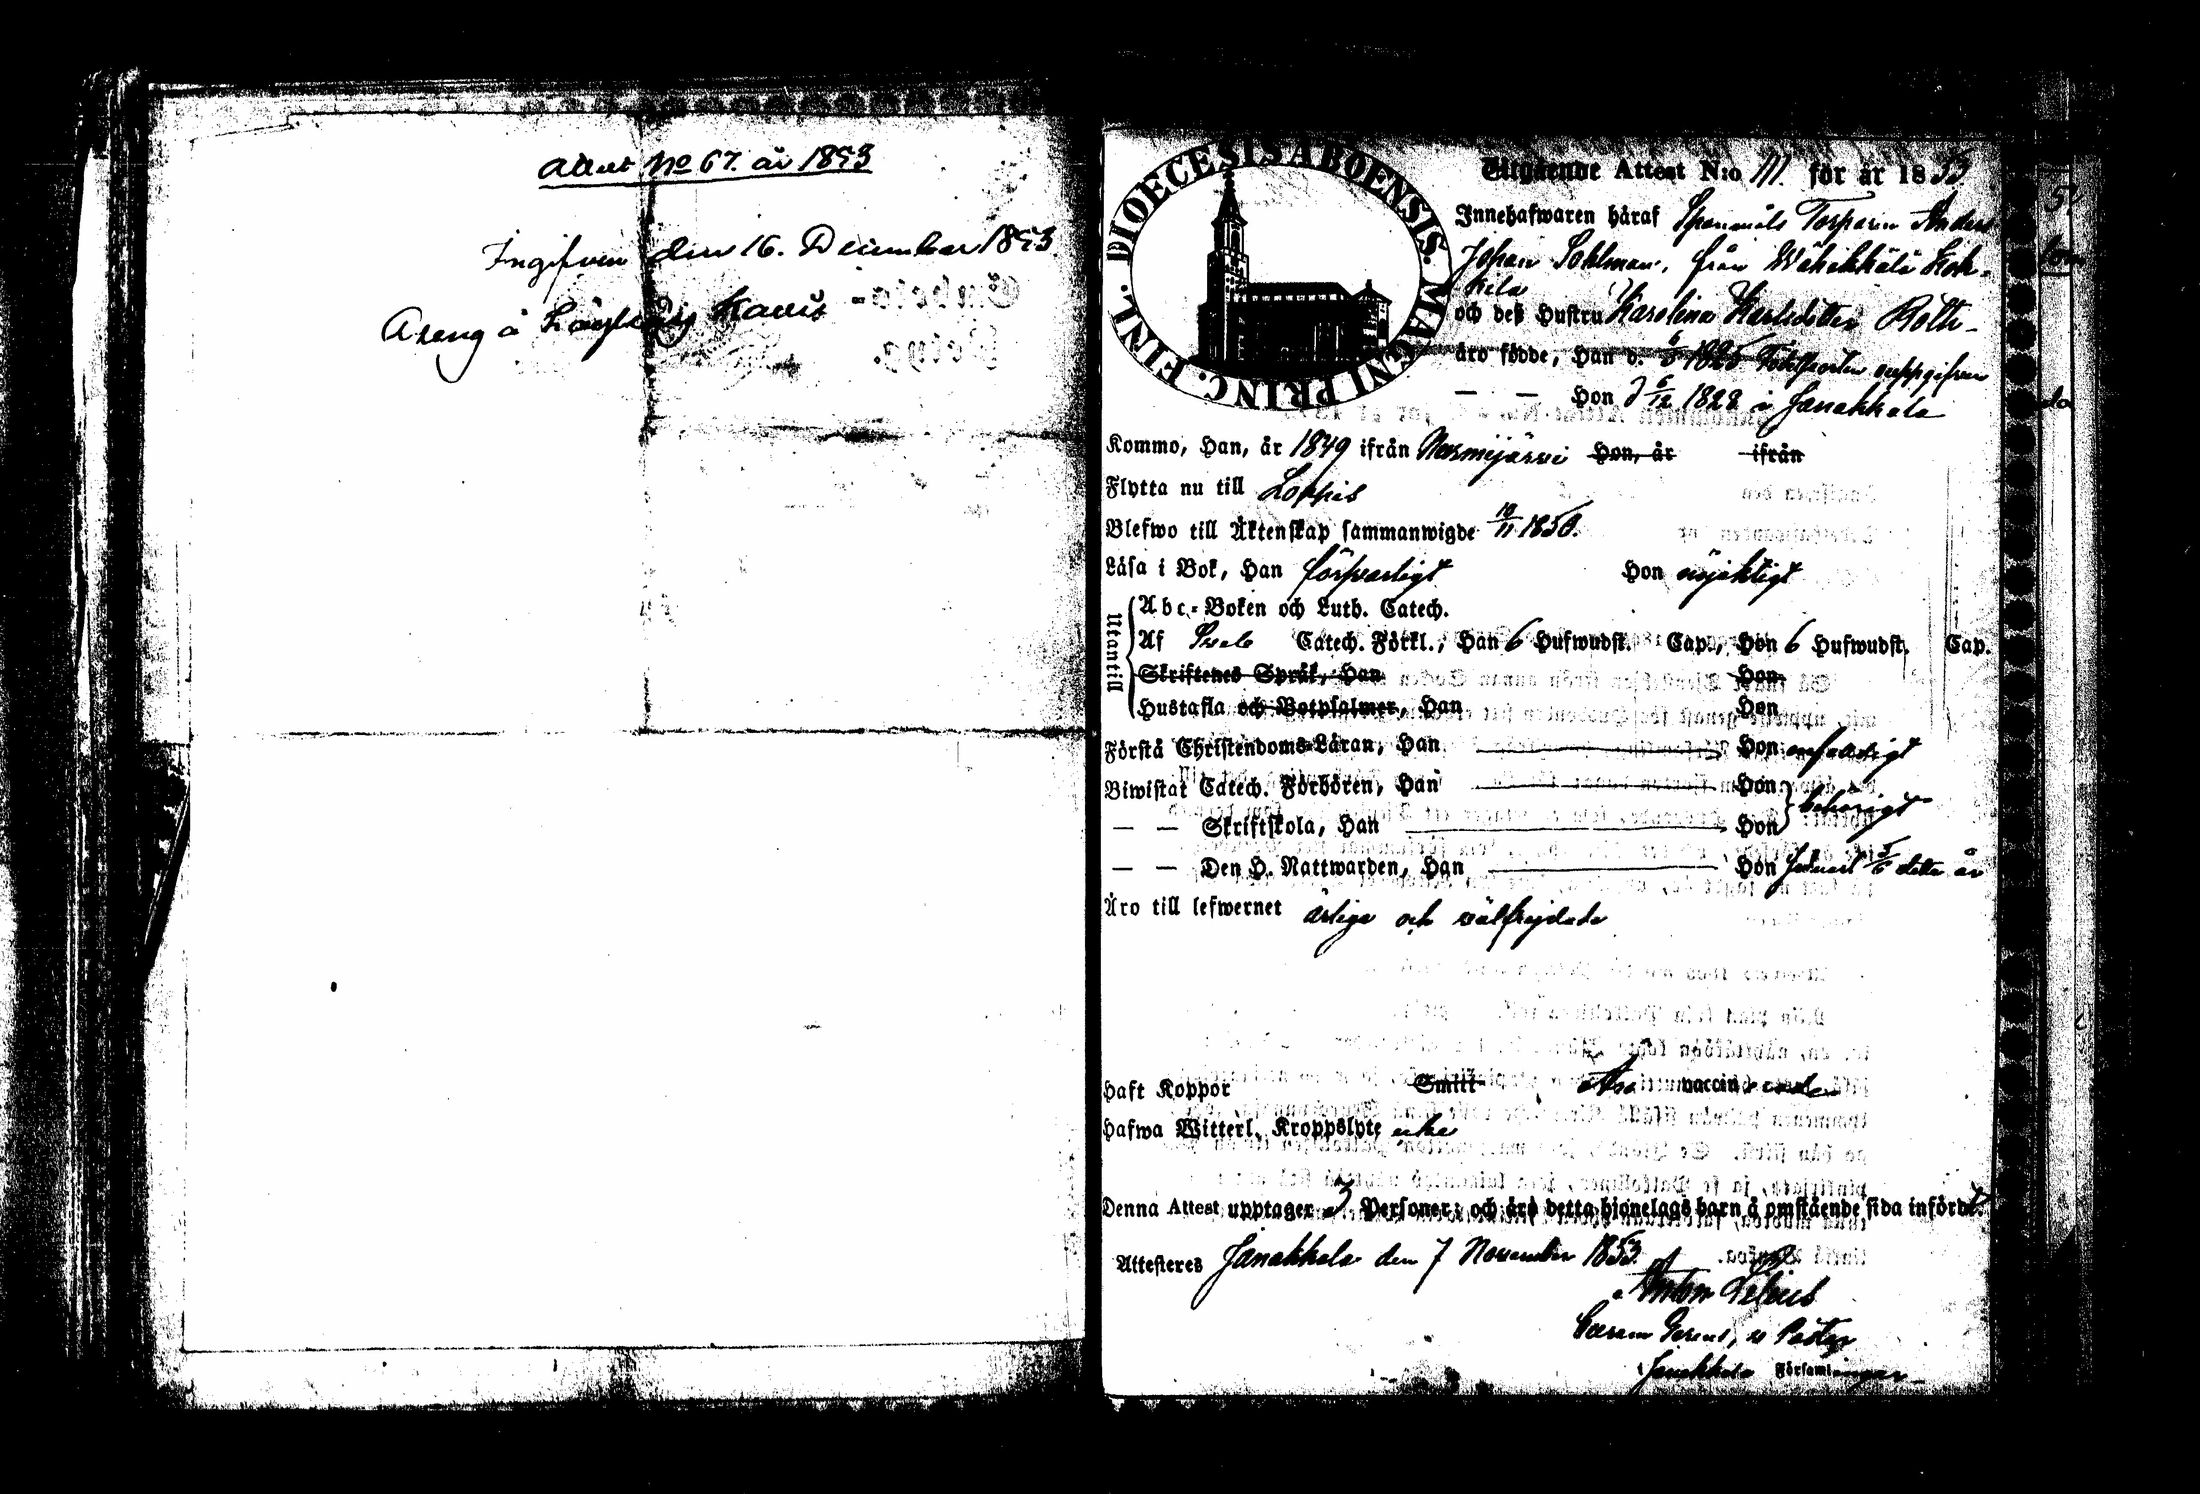 Attest No 67. år 1853
Ingifven den 16. December 1853
Areng å
DIOECESIS ABOENSIS. MAGNI PRINC. FINL.
Utgående Attest N:o 111. för år 1853
Innehafwaren häraf Torparen Anders
Johan Sohlman, från Wähikkälä
och deß Hustru Karolina Karlsdotter Roth
äro födde, Han d. 1825 uppgifven
— — Hon d 6/12 1828 i Janakkala
Kommo, Han, år 1849 ifrån Nurmijärvi Hon, år ifrån
Flytta nu till Loppis
Blefwo till Äktenskap sammanwigde 10/11 1850.
Läsa i Bok, Han försvarligt Hon nöjaktigt
Utantill
Abc-Boken och Luth. Catech.
Af Sveb Catech. Förkl., Han 6 Hufwudst. Cap., Hon 6 Hufwudst. Cap.
Skriftenes Språk, Han Hon
Hustafla och Botpsalmer, Han Hon
Förstå Christendoms-Läran, Han Hon enfaldigt
Biwistat Catech. Förhören, Han Hon
behörigt
— — Skriftskola, Han Hon
— — Den H. Nattwarden, Han Hon 5/6 detta år
Äro till lefwernet ärliga och välfrejdade
Haft Koppor Smitt Äro vaccinerade
Hafwa Witterl. Kroppslyte icke
Denna Attest upptager 3 Personer; och äro detta hjonelags barn å omstående sida införde.
Attesteras Janakkala den 7 November 1853.
Anton
Janakkala Församlingar